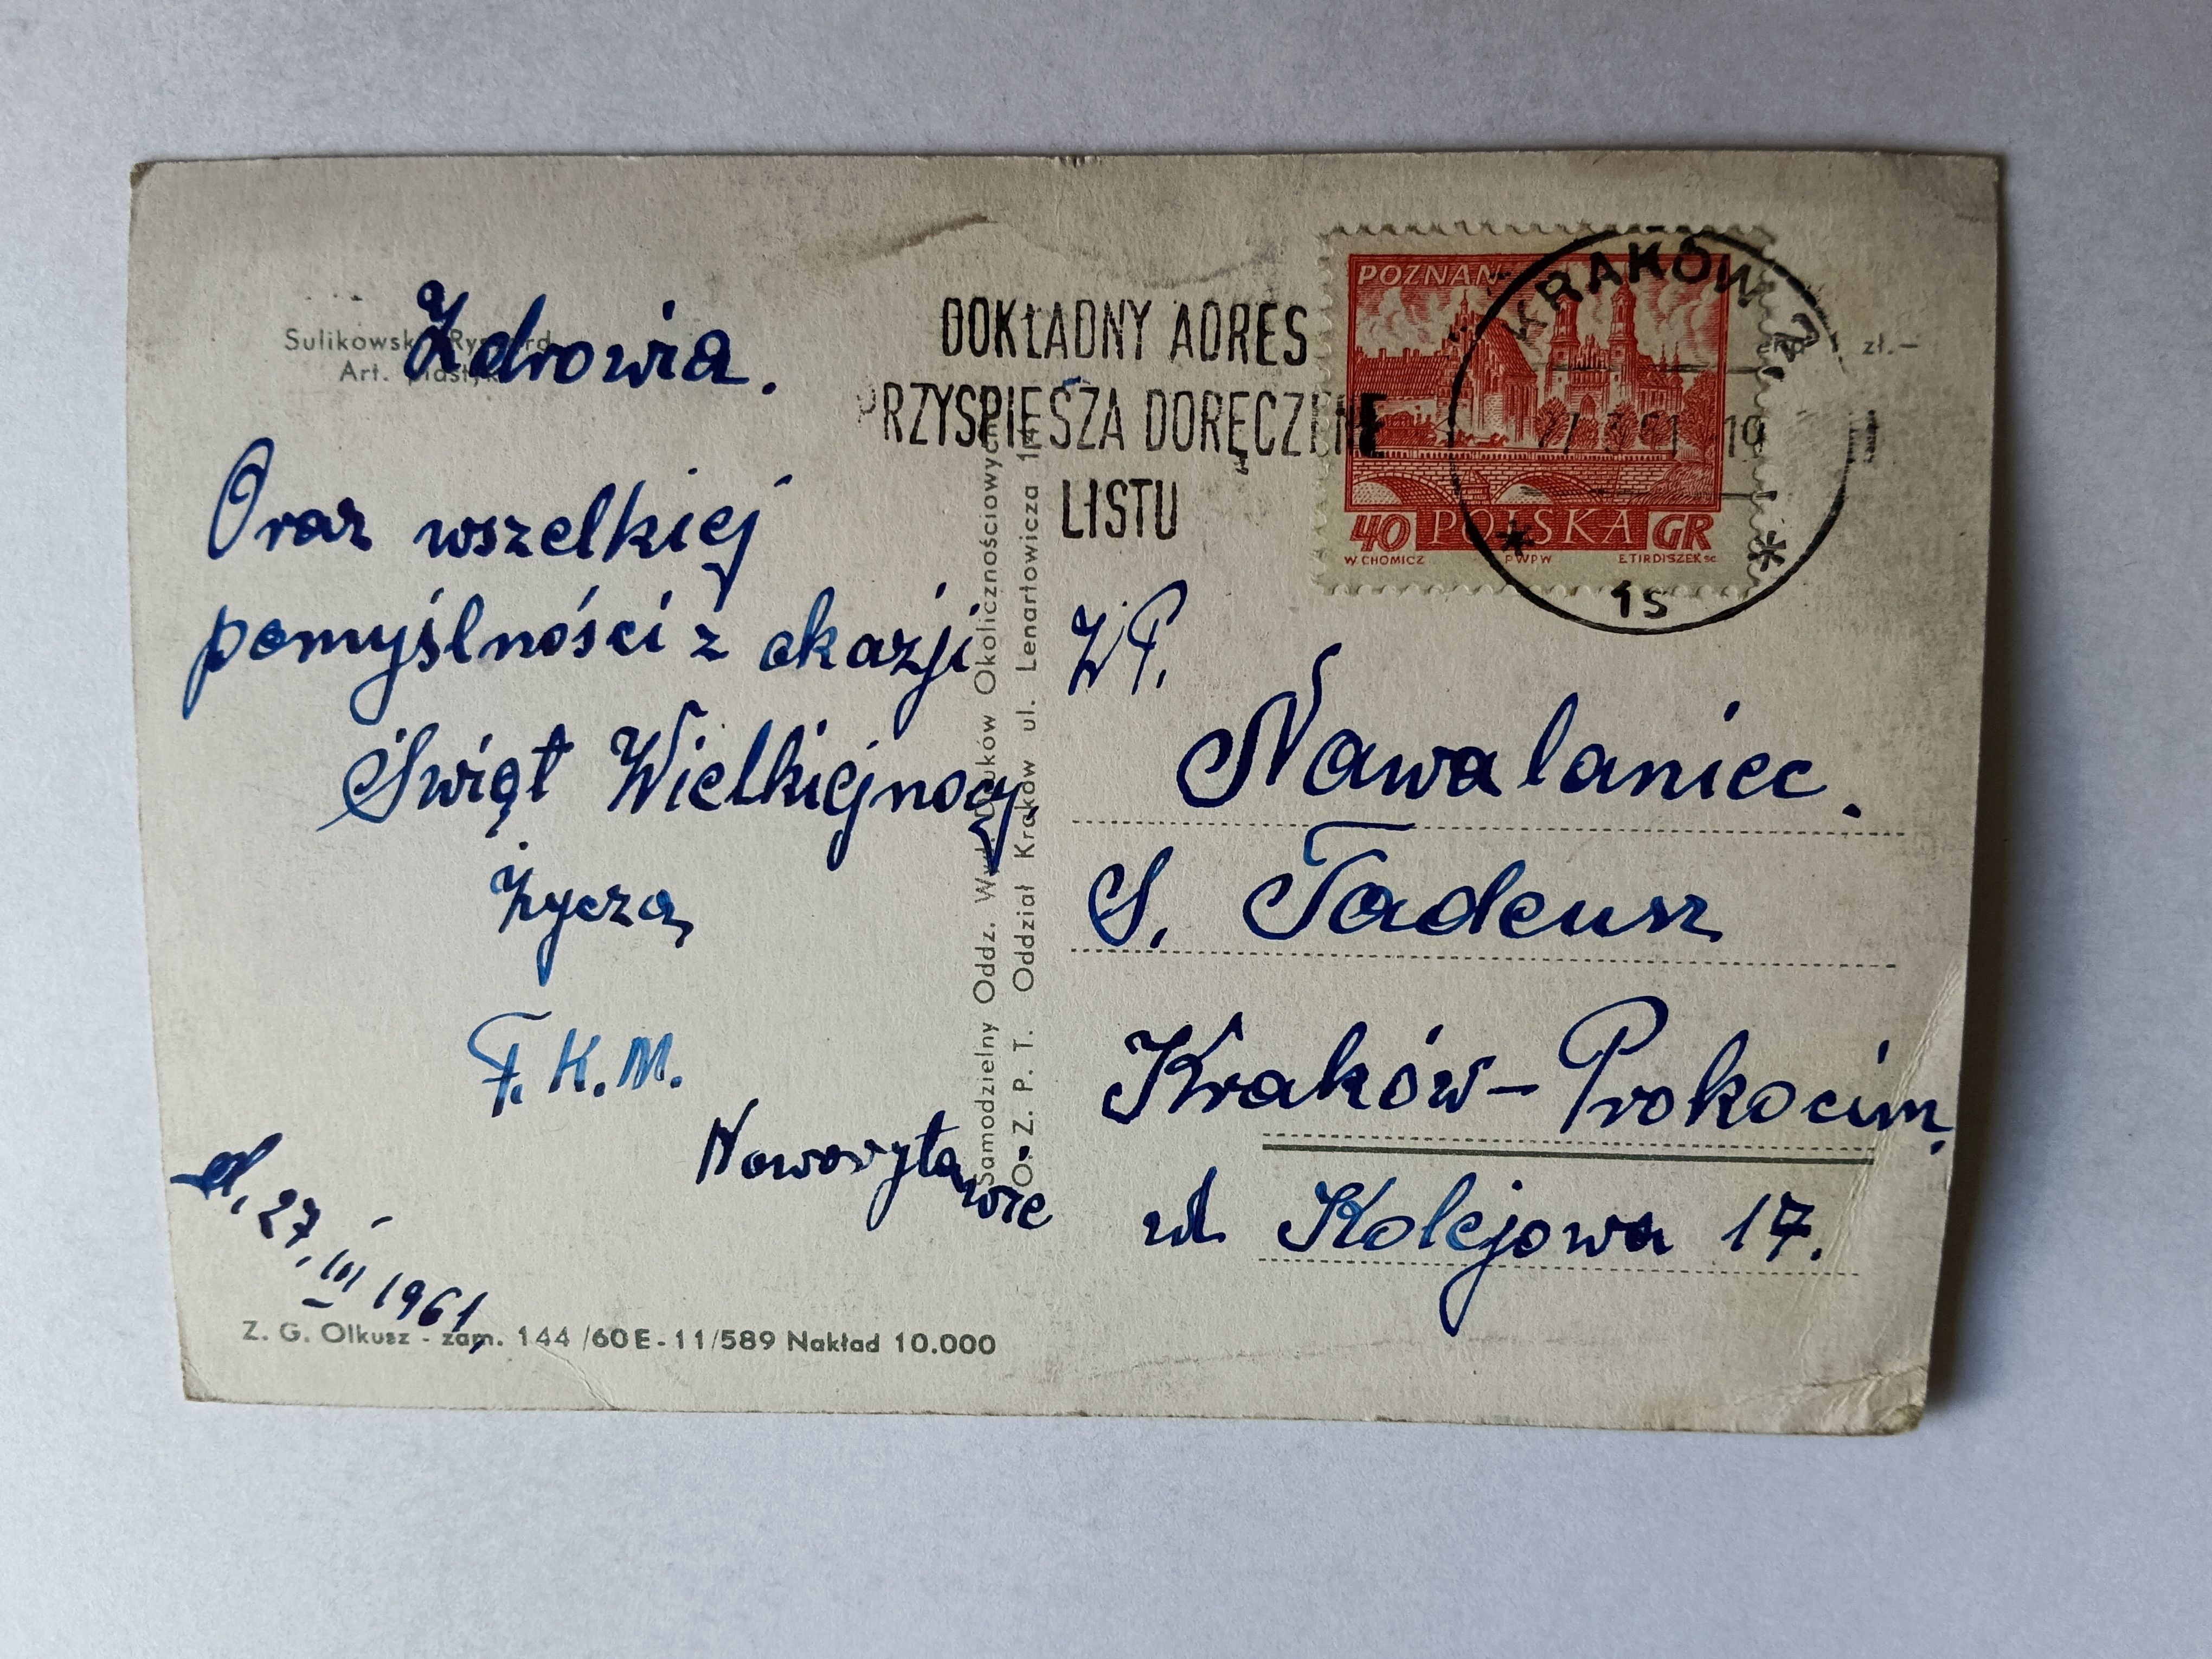 Sulikowski Ryszard
Art. plastyk
Zdrowia.
Oraz wszelkiej
pomyślności z okazji
Świąt Wielkiejnocy
życzą
F. K. M.
Noworytowie
d. 27. III 1961,
Z. G. Olkusz - zam. 144 /60 E - 11/589 Nakład 10.000
Samodzielny Oddz. Wyd. Druków Okolicznościowych
O. Z. P. T. Oddział Kraków ul. Lenartowicza 14
DOKŁADNY ADRES
PRZYSPIESZA DORĘCZENIE
LISTU
POZNAŃ
40 POLSKA GR
W. CHOMICZ PWPW E. TIRDISZEK sc.
KRAKÓW 2
27.3.61 19
1s
zł.—
WP.
Nawalaniec.
S. Tadeusz
Kraków – Prokocim,
ul Kolejowa 17.